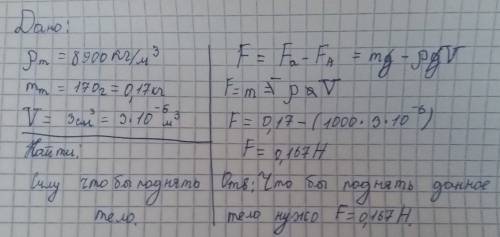 Дано:
ρm = 8900 кг/м³
mm = 170г = 0,17кг
V = 3см³ = 3·10⁻⁶м³
Найти:
Силу чтобы поднять
тело.
F = Fa - FA = mg - ρgV
F = m - ρ V
F = 0,17 - (1000·3·10⁻⁶)
F = 0,167 Н
Отв: Что бы поднять данное
тело нужо F = 0,167 Н.